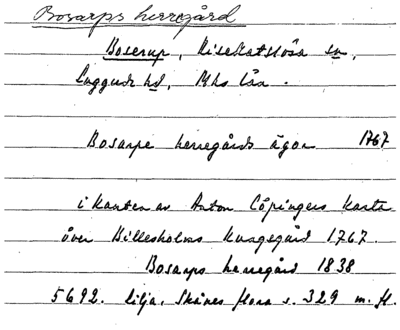 Bosarps herregård
Boserup, Risekatslösa sn,
Luggude hd, Mhs län.
Bosarps herregårds ägor 1767
i kanten av Anton Cöpingers karta
över Billesholms Kungsgård 1767.
Bosarps herregård 1838
5692. Lilja, Skånes flora s. 329 m. fl.